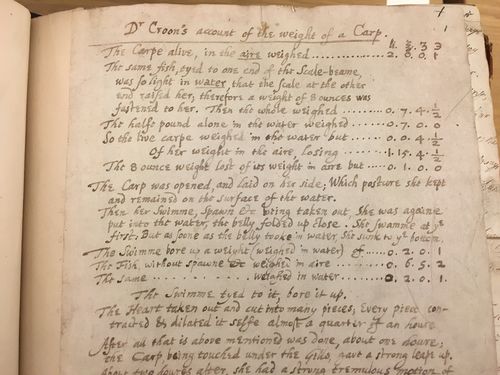 1
Dr Croon's account of the weight of a Carp.
℔. ℥. ʒ. ℈
The Carpe alive, in the aire weighed .......... 2. 0. 0. 1
The same fish, tyed to one end of the Scale-beame,
was so light in water, that the scale at the other
end raised her, therefore a weight of 8 ounces was
fastened to her. Then the whole weighed ....... 0. 7. 4. 1/2
The halfe pound alone in the water weighed ..... 0. 7. 0. 0
So the live carpe weighed in the water but ..... 0. 0. 4. 1/2
Of her weight in the aire, losing ....... 1. 15. 4. 1/2
The 8 ounce weight lost of its weight in aire but .... 0. 1. 0. 0
The Carp was opened, and laid on her side; Which posture she kept
and remained on the surface of the water.
Then her Swimme, Spawn &c being taken out, she was againe
put into the water, the belly folded up close. She swamme at ye
first; But as soone as the belly tooke in water, she sunk to ye bottom.
The Swimme bore up a weight (weighed in water) of ..... 0. 2. 0. 1
The Fish, without spawne &c weighed in aire ....... 0. 6. 5. 2
The same ........... weighed in water ......... 0. 2. 0. 1
The Swimme tyed to it, bore it up.
The Heart taken out and cut into many pieces; Every piece con-
tracted & dilated it selfe almost a quarter of an houre
After all that is above mentioned was done, about one houre;
the Carp, being touched under the Gills, gave a strong leape up.
About two houres after, she had a strong tremulous motion of